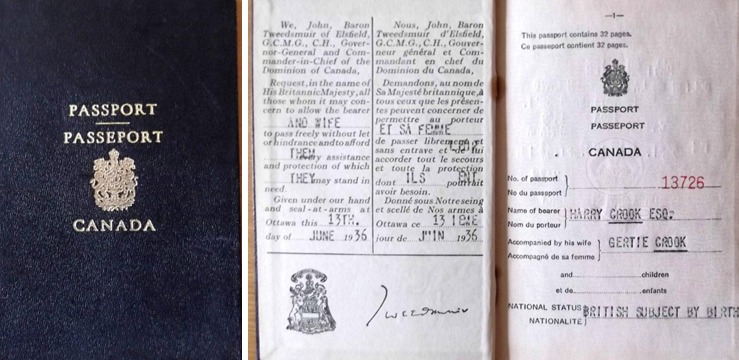 PASSPORT
PASSEPORT
CANADA
We, John, Baron
Tweedsmuir of Elsfield,
G.C.M.G., C.H., Gover-
nor-General and Com-
mander-in-Chief of the
Dominion of Canada,
Request, in the name of
His Britannic Majesty, all
those whom it may con-
cern to allow the bearer
AND WIFE
to pass freely without let
or hindrance and to afford
THEM assistance
and protection of which
THEY may stand in
need.
Given under our hand
and seal-at-arms at
Ottawa this 13TH.
day of JUNE 1936
Nous, John, Baron
Tweedsmuir d'Elsfield,
G.C.M.G., C.H., Gouver-
neur général et Com-
mandant en chef du
Dominion du Canada,
Demandons, au nom de
Sa Majesté britannique, à
tous ceux que les présen-
tes peuvent concerner de
permettre au porteur
ET SA FEMME
de passer librement et
sans entrave et de lui
accorder tout le secours
et toute la protection
dont ILS pourrait
avoir besoin.
Donné sous Notre seing
et scellé de Nos armes à
Ottawa ce 13 IEME
jour de JUIN 1936
Tweedsmuir
—1—
This passport contains 32 pages.
Ce passeport contient 32 pages.
PASSPORT
PASSEPORT
CANADA
No. of passport
No du passeport
13726
Name of bearer
Nom du porteur
HARRY CROOK ESQ.
Accompanied by his wife
Accompagné de sa femme
GERTIE CROOK
and children
et de enfants
NATIONAL STATUS
NATIONALITÉ
BRITISH SUBJECT BY BIRTH